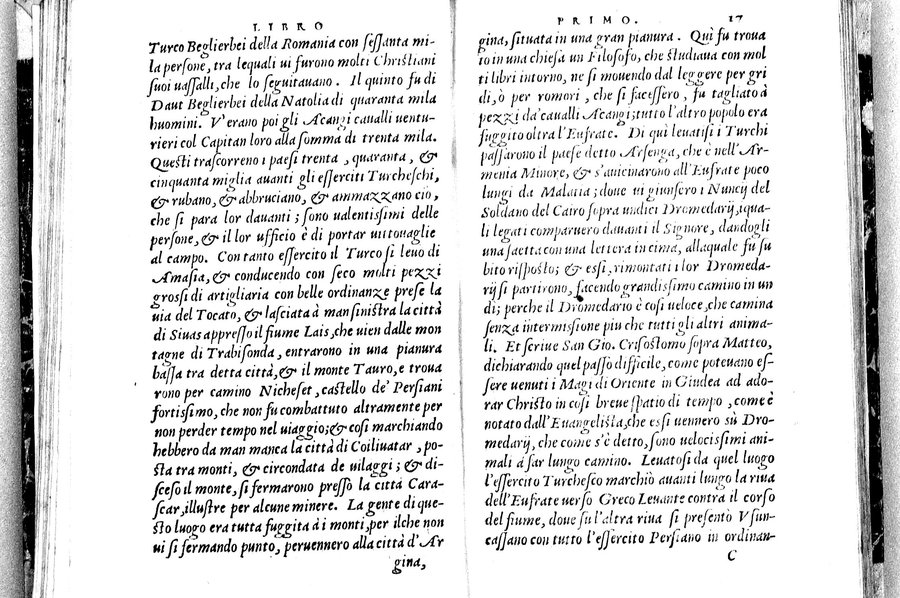 LIBRO
Turco Beglierbei della Romania con seſſanta mi-
la perſone, tra lequali ui furono molti Chriſtiani
ſuoi uaſſalli, che lo ſeguitauano. Il quinto fu di
Daut Beglierbei della Natolia di quaranta mila
huomini. V'erano poi gli Acangi caualli uentu-
rieri col Capitan loro alla ſomma di trenta mila.
Queſti traſcorreno i paeſi trenta, quaranta, &
cinquanta miglia auanti gli eſſerciti Turcheſchi,
& rubano, & abbruciano, & ammazzano ciò,
che ſi para lor dauanti; ſono ualentiſſimi delle
perſone, & il lor ufficio è di portar uittouaglie
al campo. Con tanto eſſercito il Turco ſi leuo di
Amaſia, & conducendo con ſeco molti pezzi
groſſi di artigliaria con belle ordinanze preſe la
uia del Tocato, & laſciata à man ſiniſtra la città
di Siuas appreſſo il fiume Lais, che uien dalle mon
tagne di Trabiſonda, entrarono in una pianura
baſſa tra detta città, & il monte Tauro, e troua
rono per camino Nicheſet, caſtello de' Perſiani
fortiſſimo, che non fu combattuto altramente per
non perder tempo nel uiaggio; & coſi marchiando
hebbero da man manca la città di Coiliuatar, po-
ſta tra monti, & circondata de uilaggi; & di-
ſceſo il monte, ſi fermarono preſſo la città Cara-
ſcar, illuſtre per alcune minere. La gente di que-
ſto luogo era tutta fuggita à i monti, per ilche non
ui ſi fermando punto, peruennero alla città d'Ar
gina,
PRIMO. 17
gina, ſituata in una gran pianura. Quì fu troua
to in una chieſa un Filoſofo, che ſtudiaua con mol
ti libri intorno, ne ſi mouendo dal leggere per gri
di, ò per romori, che ſi faceſſero, fu tagliato à
pezzi da' caualli Acangi; tutto l'altro popolo era
fuggito oltra l'Eufrate. Di quì leuatiſi i Turchi
paſſarono il paeſe detto Arſenga, che è nell'Ar-
menia Minore, & s'auicinarono all'Eufrate poco
lungi da Malatia; doue ui gionſero i Nuncij del
Soldano del Cairo ſopra undici Dromedarij, iqua-
li legati comparuero dauanti il Signore, dandogli
una ſaetta con una lettera in cima, alla quale fu ſu
bito riſpoſto; & eſſi, rimontati i lor Dromeda-
rij ſi partirono, facendo grandiſſimo camino in un
dì; perche il Dromedario è coſi ueloce, che camina
ſenza intermiſſione piu che tutti gli altri anima-
li. Et ſcriue San Gio. Criſoſtomo ſopra Matteo,
dichiarando quel paſſo difficile, come poteuano eſ-
ſere uenuti i Magi di Oriente in Giudea ad ado-
rar Chriſto in coſi breue ſpatio di tempo, come è
notato dall'Euangeliſta, che eſſi uennero sù Dro-
medarij, che come s'è detto, ſono uelociſſimi ani-
mali à far lungo camino. Leuatoſi da quel luogo
l'eſſercito Turcheſco marchiò auanti lungo la riua
dell'Eufrate uerſo Greco Leuante contra il corſo
del fiume, doue ſu l'altra riua ſi preſentò Vſun-
caſſano con tutto l'eſſercito Perſiano in ordinan-
C